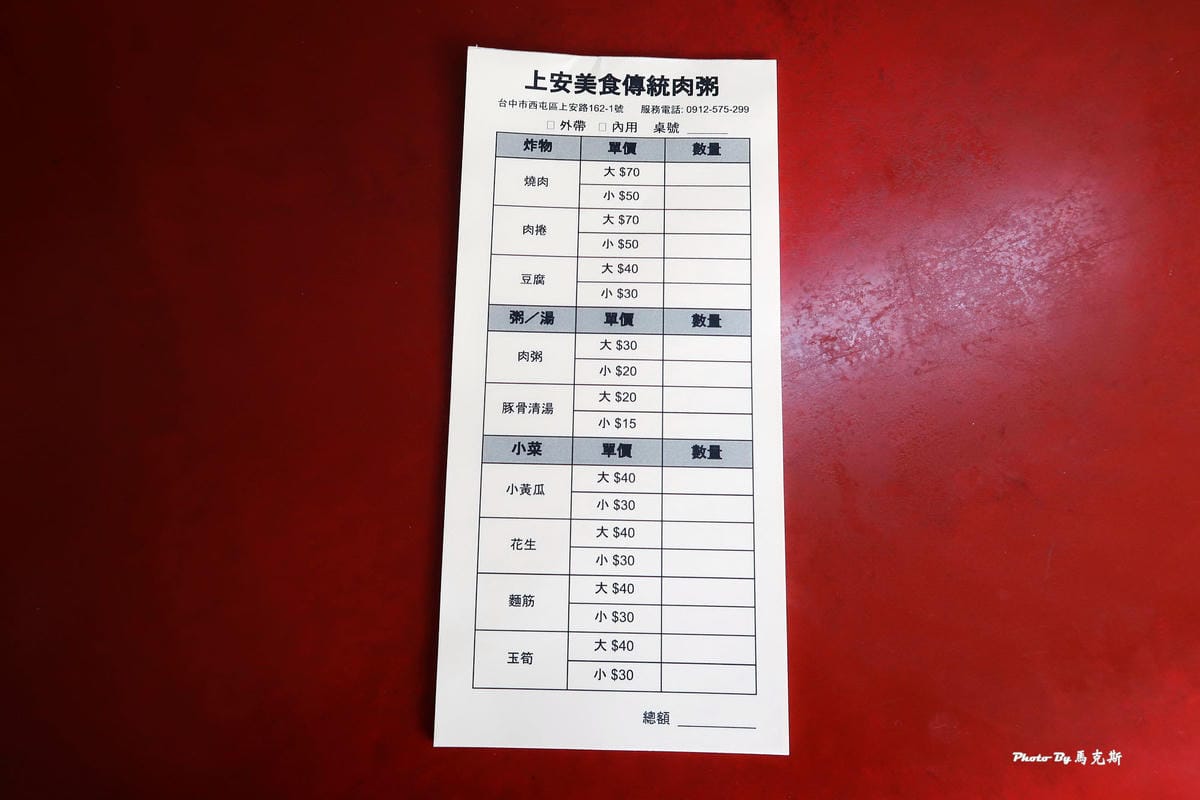 上安美食傳統肉粥
台中市西屯區上安路162-1號 服務電話: 0912-575-299
□ 外帶 □ 內用 桌號 ______
炸物 單價 數量
燒肉 大 $70
小 $50
肉捲 大 $70
小 $50
豆腐 大 $40
小 $30
粥／湯 單價 數量
肉粥 大 $30
小 $20
豚骨清湯 大 $20
小 $15
小菜 單價 數量
小黃瓜 大 $40
小 $30
花生 大 $40
小 $30
麵筋 大 $40
小 $30
玉筍 大 $40
小 $30
總額 __________
Photo By 馬克斯